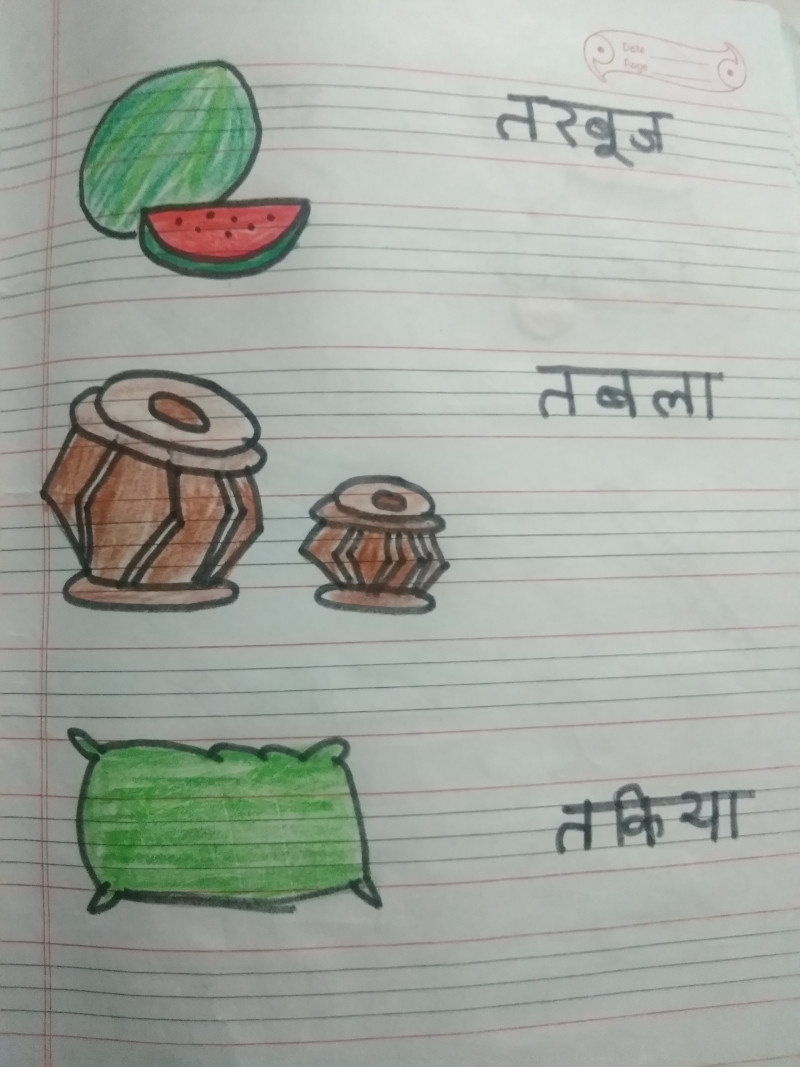 Date
Page
तरबूज
तबला
तकिया